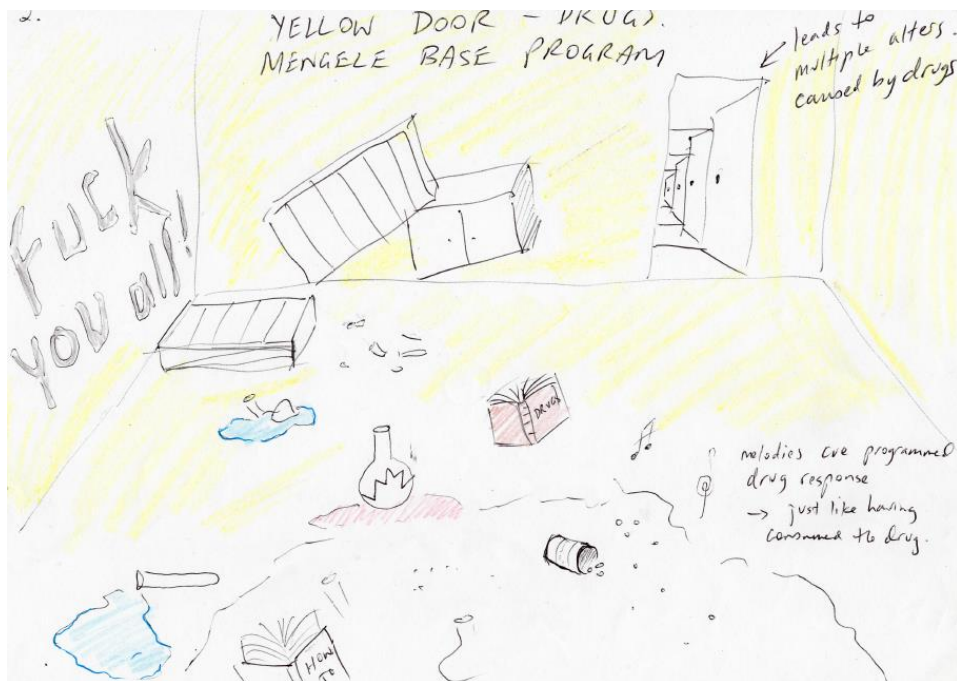 2.
YELLOW DOOR - DRUGS.
MENGELE BASE PROGRAM
leads to
multiple alters.
caused by drugs
FUCK
YOU all!
DRUGS
melodies cue programmed
drug response
→ just like having
consumed the drug.
HOW
TO